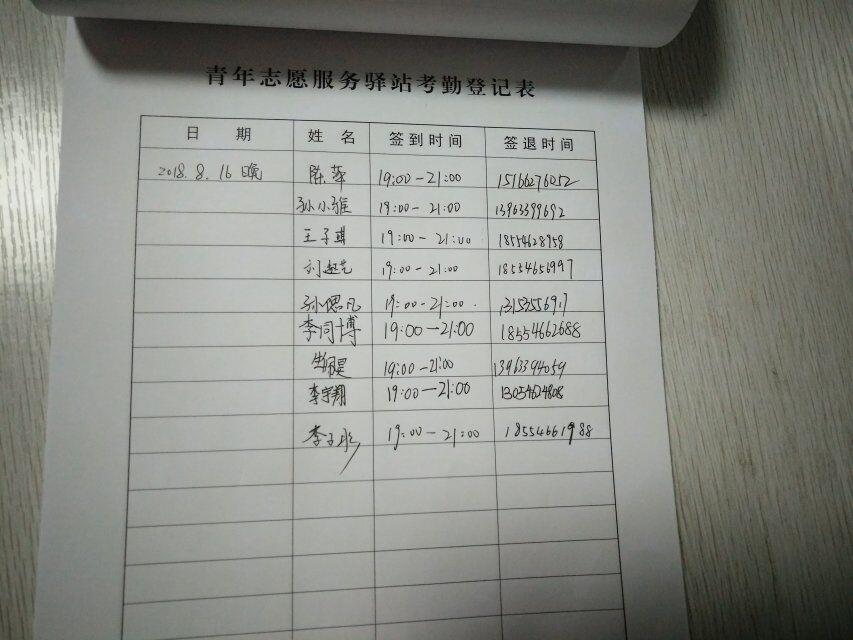 青年志愿服务驿站考勤登记表
日 期 姓 名 签到时间 签退时间
2018.8.16晚 陈萍 19:00-21:00 15166276052
孙小雅 19:00-21:00 13963399692
王子琪 19:00-21:00 18554628958
刘 19:00-21:00 18554656997
孙偲凡 19:00-21:00. 13153556917
李同博 19:00-21:00 18554662688
19:00-21:00 13963394059
李宇翔 19:00-21:00 13054624808
李子彤 19:00-21:00 18554661988